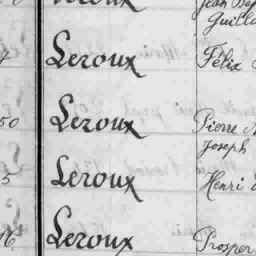 Jean Bap
Guilla
Leroux Félix
50 Leroux Pierre
Joseph
5 Leroux Henri
16 Leroux Prosper